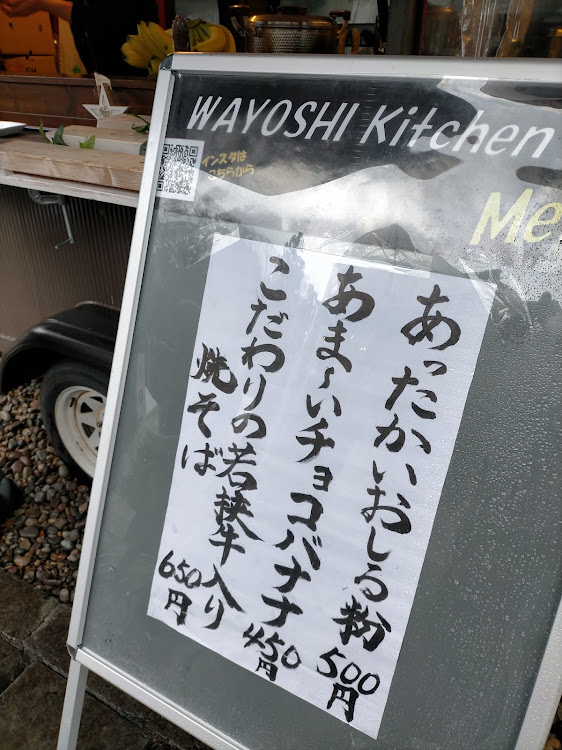 WAYOSHI Kitchen
インスタは
こちらから
Me
あったかいおしる粉 500円
あま〜いチョコバナナ 450円
こだわりの若狭牛入り
焼そば 650円